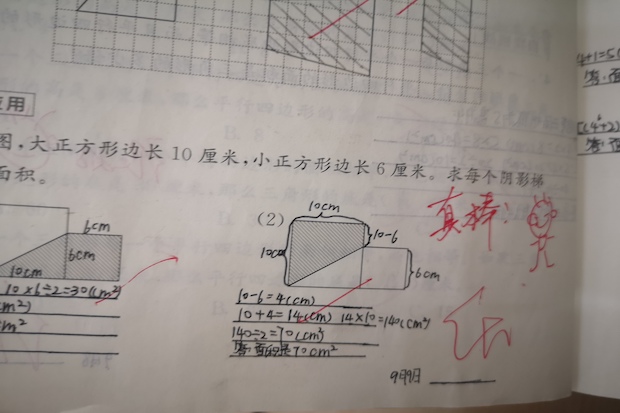 应用
图，大正方形边长10厘米，小正方形边长6厘米。求每个阴影梯
面积。
6cm
6cm
10cm
10×6÷2=30(cm²)
cm²)
cm²
(2)
10cm
10cm
10-6
6cm
10-6=4(cm)
10+4=14(cm) 14×10=140(cm²)
140÷2=70(cm²)
答:面积是70cm²
真棒!
9月9日
4+1=5(
答:面